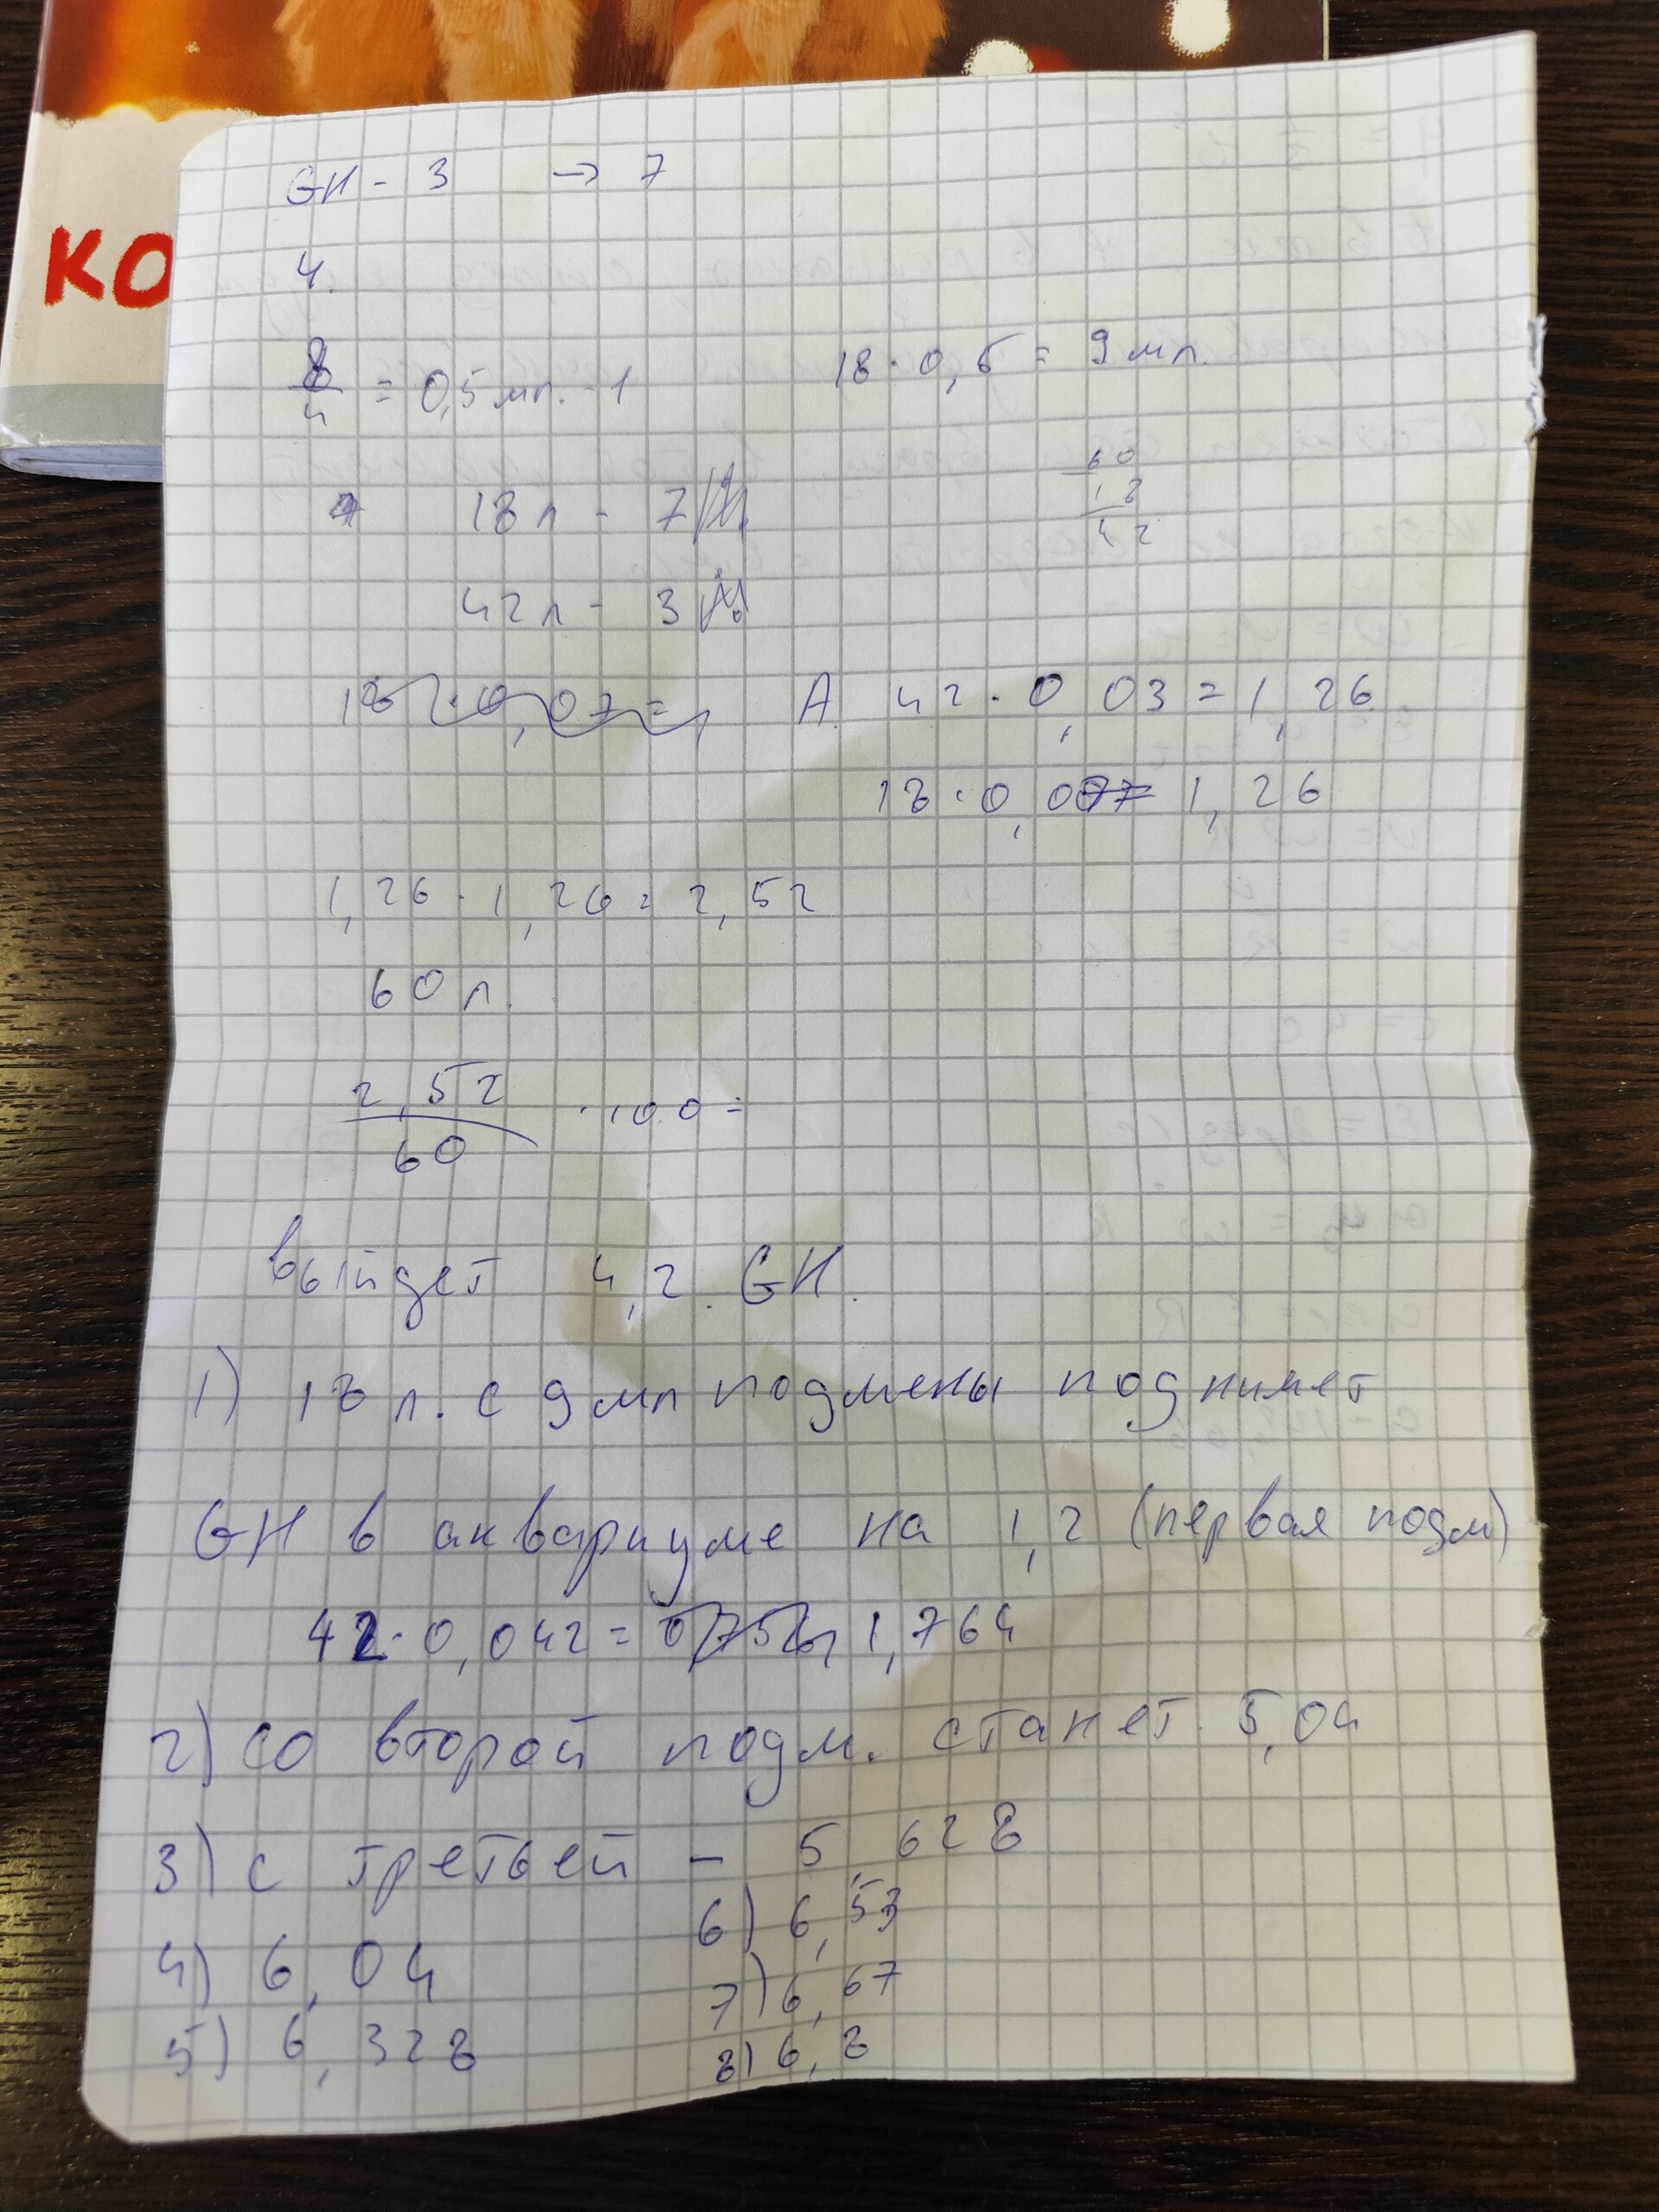 КО
GH - 3 → 7
4.
8/4 = 0,5 мл. - 1
18 · 0,5 = 9 мл.
60
18
42
18 л - 7
42 л - 3
18 · 0,07 =
А. 42 · 0,03 = 1,26
18 · 0,07 = 1,26
1,26 · 1,26 = 2,52
60 л.
2,52/60 · 100 =
выйдет 4,2. GH.
1) 18 л. с 9 мл подмены поднимет
GH в аквариуме на 1,2 (первая подм)
42 · 0,042 = 1,764
2) со второй подм. станет 5,04
3) с третьей - 5,628
4) 6,04
5) 6,328
6) 6,53
7) 6,67
8) 6,8